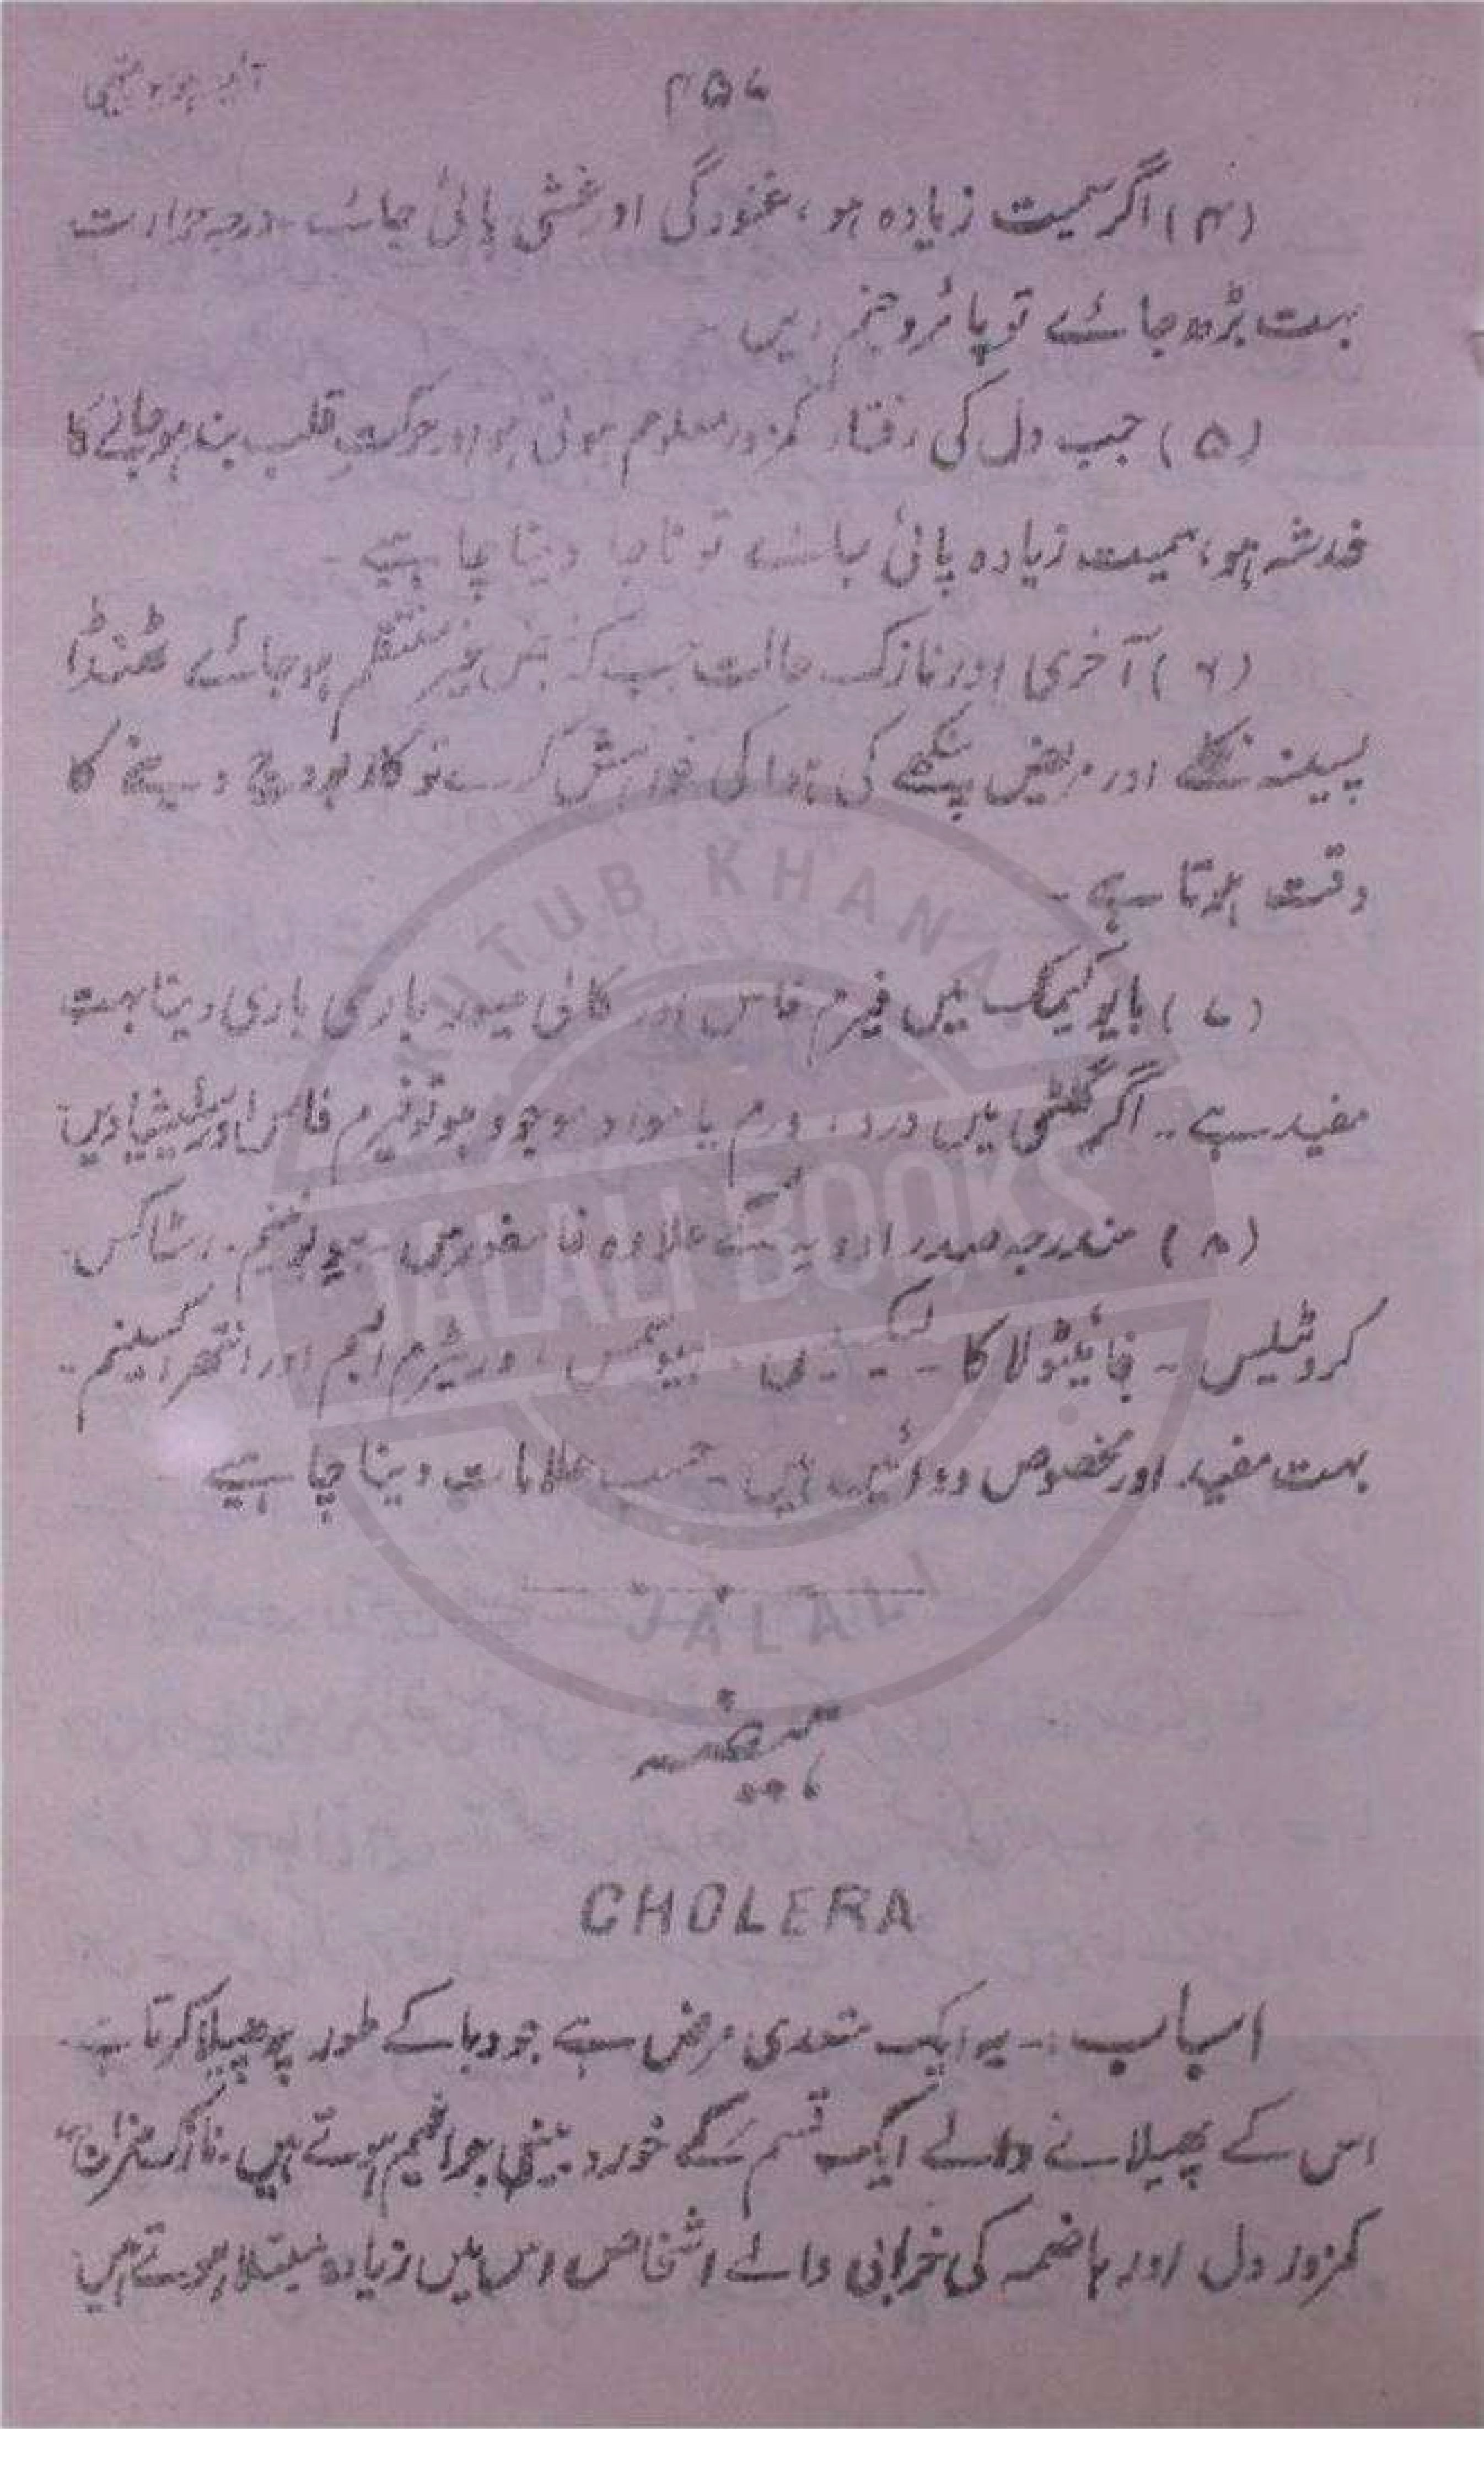 ۴۵۷
(۴) اگر سمیت زیادہ ہو، غنودگی اور غشی پائی جائے۔ درجہ حرارت
بہت بڑھ جائے تو پائروجینم دیں۔
(۵) جب دل کی رفتار کمزور معلوم ہوتی ہو اور حرکتِ قلب بند ہو جانے کا
خدشہ ہو، سمیت زیادہ پائی جائے تو ناجا دینا چاہیے۔
(۶) آخری اور نازک حالت جب کہ نبض غیر منتظم ہو جائے، ٹھنڈا
پسینہ نکلے اور مریض پنکھے کی ہوا کی خواہش کرے تو کاربو ویج دینے کا
وقت ہوتا ہے۔
(۷) بایوکیمک میں فیرم فاس اور کالی میور باری باری دینا بہت
مفید ہے۔ اگر گلٹی میں درد، ورم یا مواد موجود ہو تو فیرم فاس اور سلیشیا دیں
(۸) مندرجہ صدر ادویہ کے علاوہ فاسفورس۔ ۔ رسٹاکس۔
کروٹیلس ۔ فائیٹولاکا ۔ لیکیسس، ، ورٹیرم البم اور انتھراکسینم ۔
بہت مفید اور مخصوص دوائیں ہیں۔ حسب علامات دینا چاہیے
ہیضہ
CHOLERA
اسباب :۔ یہ ایک متعدی مرض ہے جو وبا کے طور پر پھیلا کرتا ہے۔
اس کے پھیلانے والے ایک قسم کے خوردبینی جراثیم ہوتے ہیں۔ نازک مزاج،
کمزور دل اور ہاضمہ کی خرابی والے اشخاص اس میں زیادہ مبتلا ہوتے ہیں
KUTUB KHANA
JALALI BOOKS
JALALI